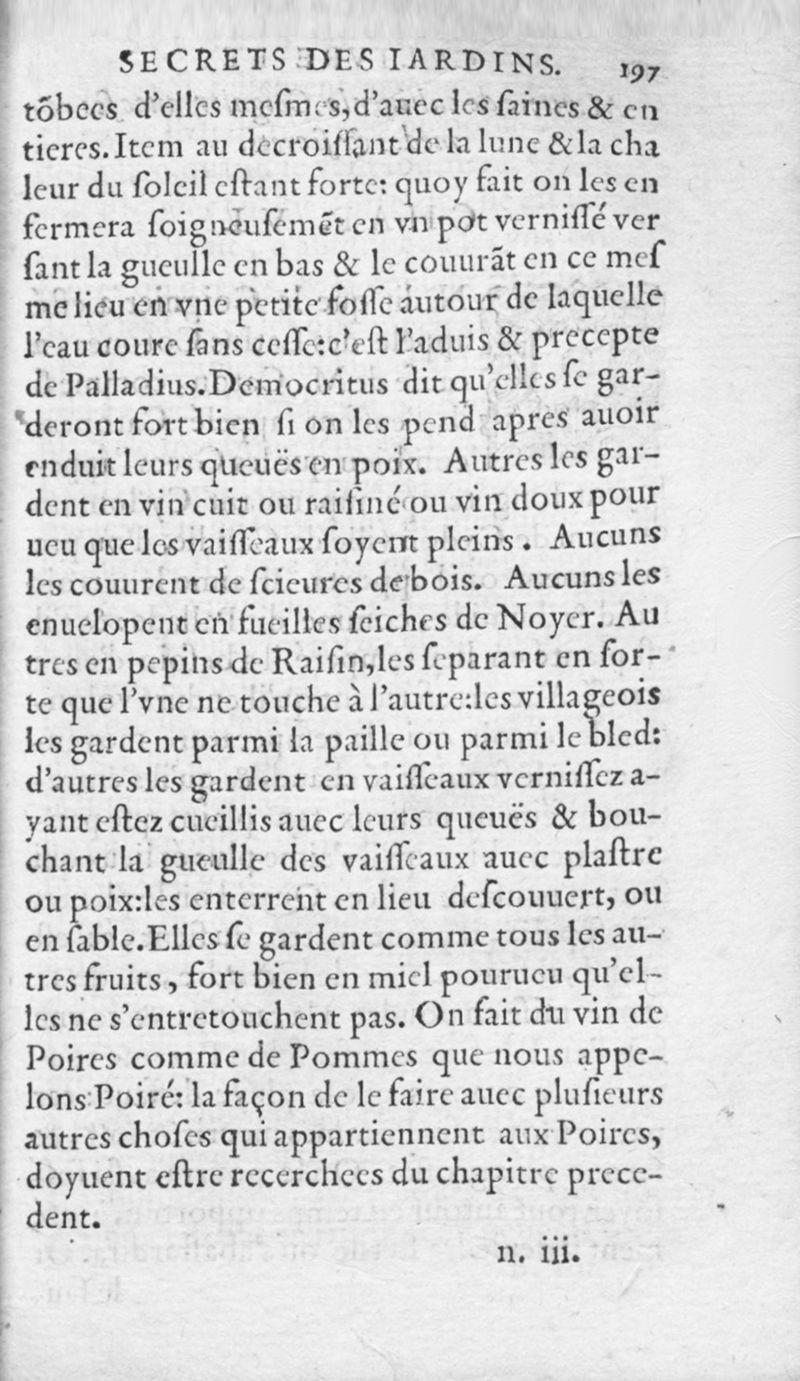 SECRETS DES IARDINS. 197
tõbees d'elles meſmes, d'auec les ſaines & en
tieres. Item au decroiſſant de la lune & la cha
leur du ſoleil eſtant forte: quoy fait on les en
fermera ſoigneuſemẽt en vn pot verniſſé ver
ſant la gueulle en bas & le couurãt en ce meſ
me lieu en vne petite foſſe autour de laquelle
l'eau coure ſans ceſſe: c'eſt l'aduis & precepte
de Palladius. Democritus dit qu'elles ſe gar-
deront fort bien ſi on les pend apres auoir
enduit leurs queuës en poix. Autres les gar-
dent en vin cuit ou raiſiné ou vin doux pour
ueu que les vaiſſeaux ſoyent pleins. Aucuns
les couurent de ſcieures de bois. Aucuns les
enuelopent en fueilles ſeiches de Noyer. Au
tres en pepins de Raiſin, les ſeparant en ſor-
te que l'vne ne touche à l'autre: les villageois
les gardent parmi la paille ou parmi le bled:
d'autres les gardent en vaiſſeaux verniſſez a-
yant eſtez cueillis auec leurs queuës & bou-
chant la gueulle des vaiſſeaux auec plaſtre
ou poix: les enterrent en lieu deſcouuert, ou
en ſable. Elles ſe gardent comme tous les au-
tres fruits, fort bien en miel pourueu qu'el-
les ne s'entretouchent pas. On fait du vin de
Poires comme de Pommes que nous appe-
lons Poiré: la façon de le faire auec pluſieurs
autres choſes qui appartiennent aux Poires,
doyuent eſtre recerchees du chapitre prece-
dent.
n. iii.